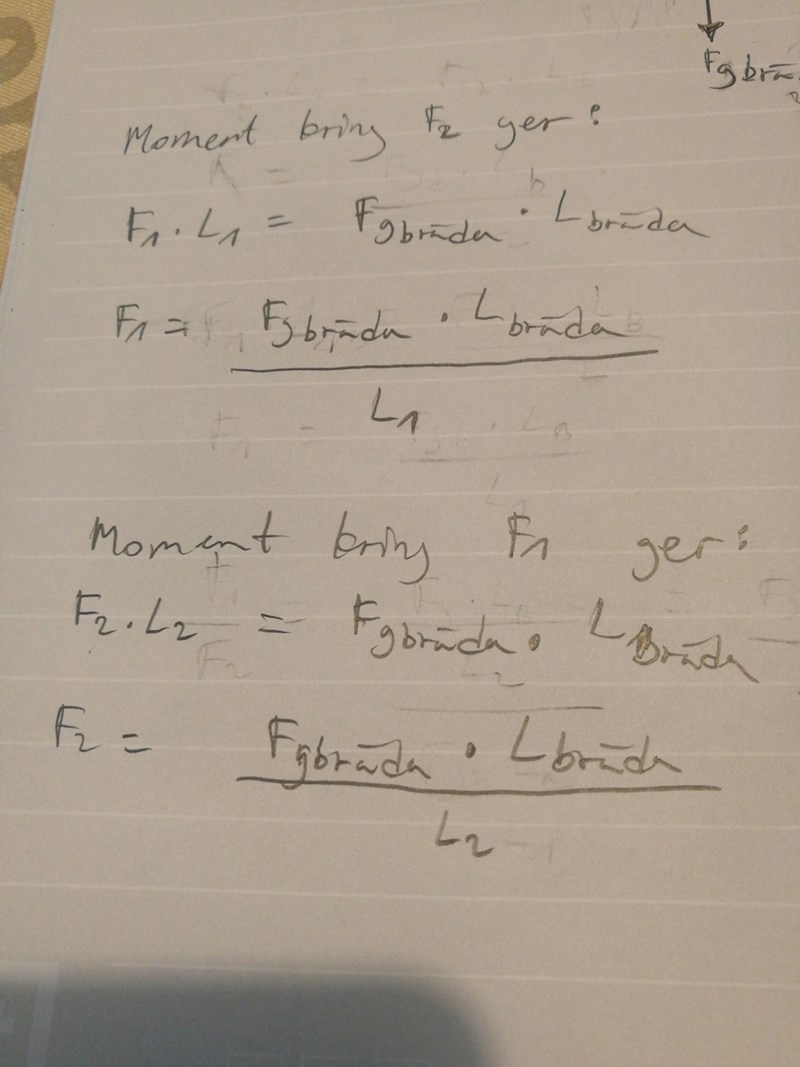 Fgbrä
Moment kring F2 ger:
F1 · L1 = Fgbräda · Lbräda
F1 = Fgbräda · Lbräda
L1
Moment kring F1 ger:
F2 · L2 = Fgbräda · LBräda
F2 = Fgbräda · Lbräda
L2